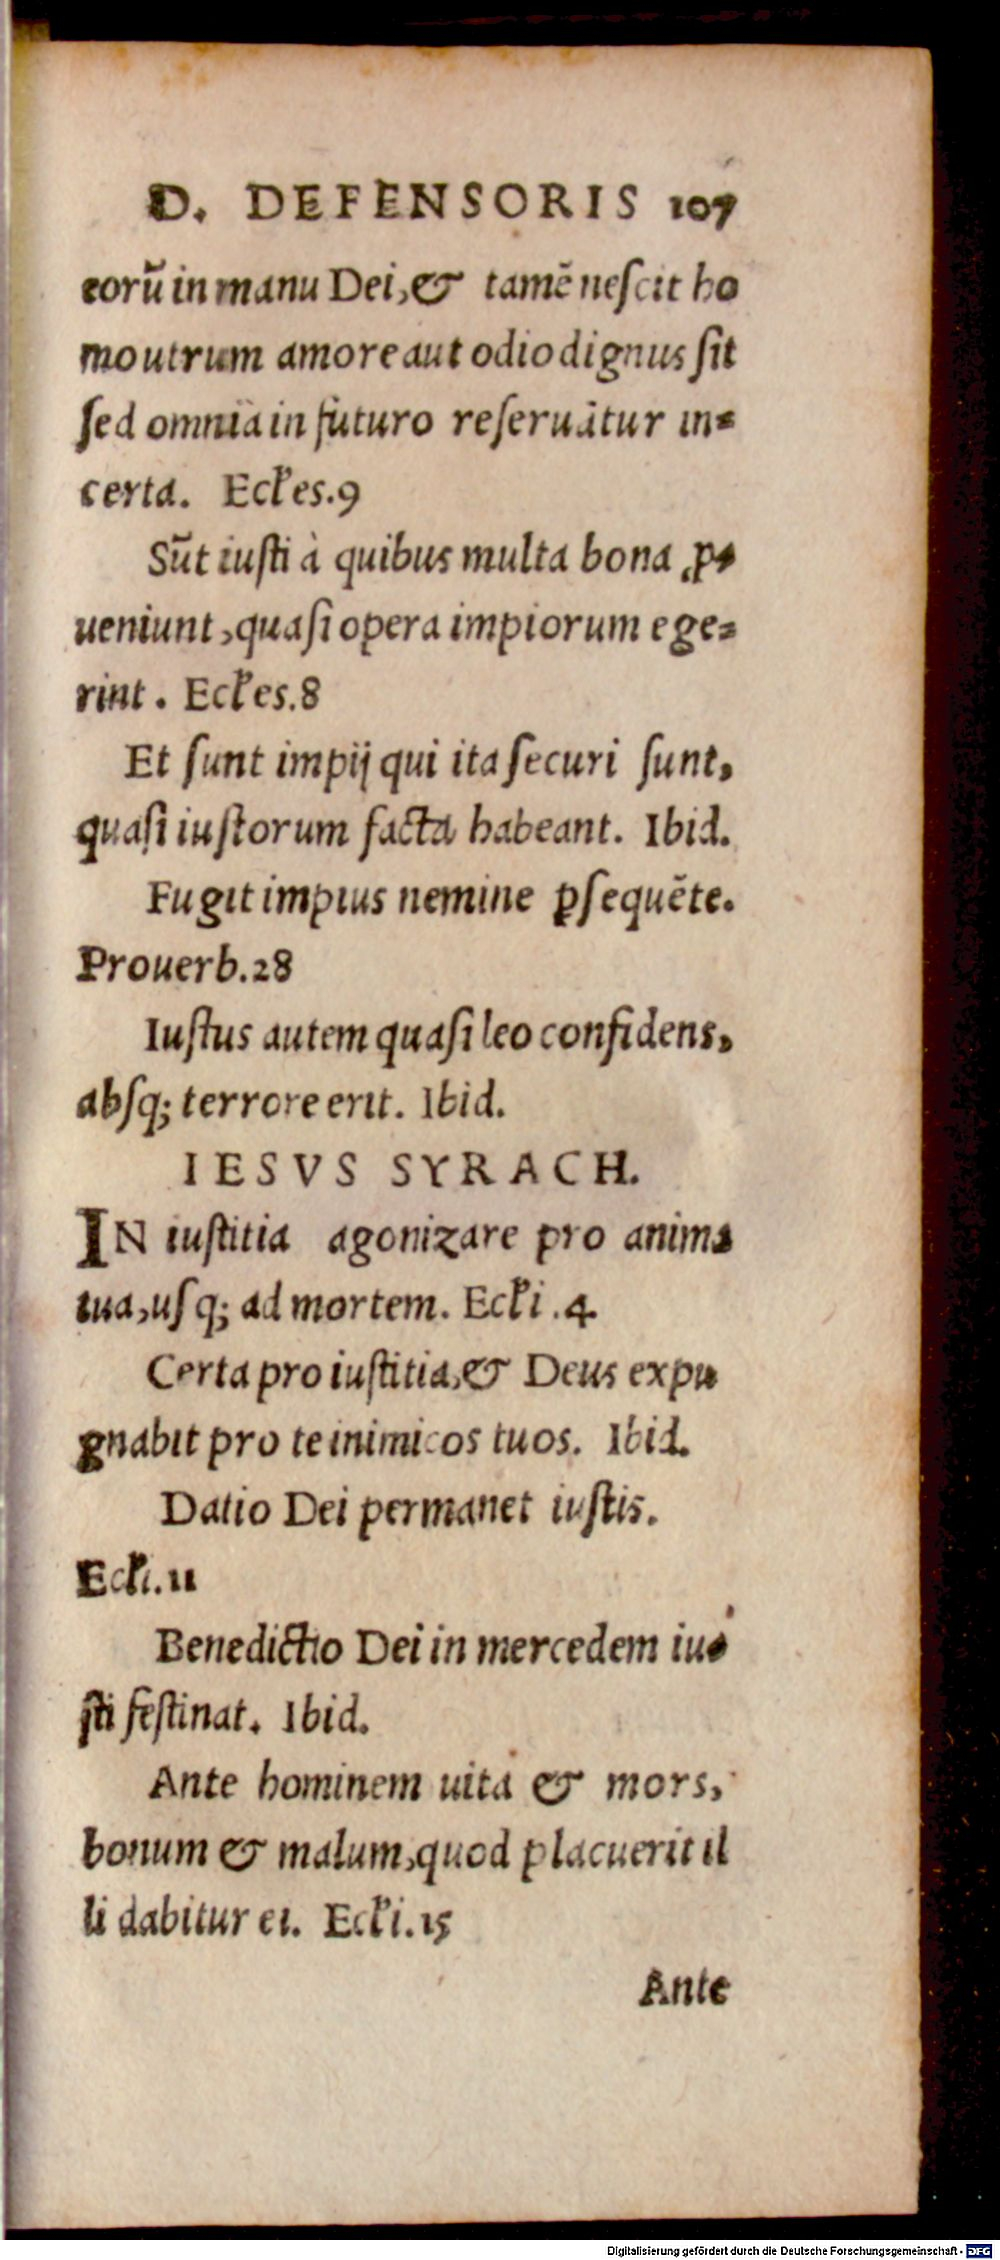 D. DEFENSORIS 107
eorũ in manu Dei, & tamẽ neſcit ho
mo utrum amore aut odio dignus ſit
ſed omnia in futuro reſeruãtur in=
certa. Eccl̃es.9
Sũt iuſti à quibus multa bona ꝓ=
ueniunt, quaſi opera impiorum ege=
rint. Eccl̃es.8
Et ſunt impij qui ita ſecuri ſunt,
quaſi iuſtorum facta habeant. Ibid.
Fugit impius nemine ꝑſequẽte.
Prouerb.28
Iuſtus autem quaſi leo confidens,
abſq; terrore erit. Ibid.
IESVS SYRACH.
IN iuſtitia agonizare pro anima
tua, uſq; ad mortem. Eccl̃i.4
Certa pro iuſtitia, & Deus expu
gnabit pro te inimicos tuos. Ibid.
Datio Dei permanet iuſtis.
Eccl̃i.11
Benedictio Dei in mercedem iu=
ſti feſtinat. Ibid.
Ante hominem uita & mors,
bonum & malum, quod placuerit il
li dabitur ei. Eccl̃i.15
Ante
Digitalisierung gefördert durch die Deutsche Forschungsgemeinschaft - DFG